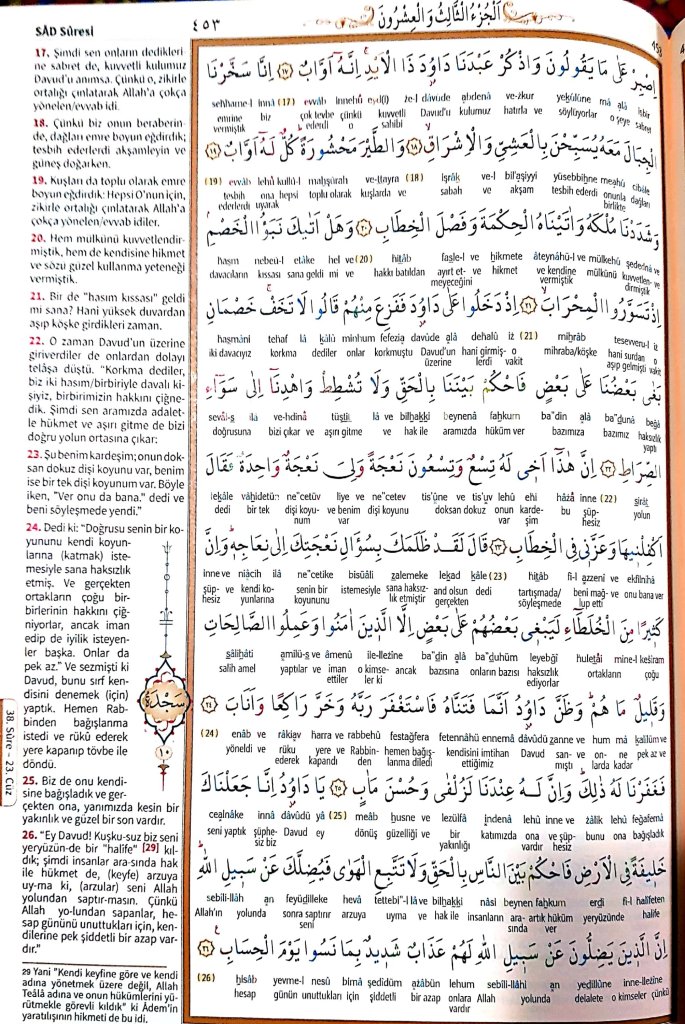 SÂD Sûresi
٤٥٣
اَلْجُزْءُ الثَّالِثُ وَالْعِشْرُونَ
17. Şimdi sen onların dedikleri
ne sabret de, kuvvetli kulumuz
Davud'u anımsa. Çünkü o, zikirle
ortalığı çınlatarak Allah'a çokça
yönelen/evvab idi.
18. Çünkü biz onun beraberin-
de, dağları emre boyun eğdirdik;
tesbih ederlerdi akşamleyin ve
güneş doğarken.
19. Kuşları da toplu olarak emre
boyun eğdirdik: Hepsi O'nun için,
zikirle ortalığı çınlatarak Allah'a
çokça yönelen/evvab idiler.
20. Hem mülkünü kuvvetlendir-
miştik, hem de kendisine hikmet
ve sözü güzel kullanma yeteneği
vermiştik.
21. Bir de "hasım kıssası" geldi
mi sana? Hani yüksek duvardan
aşıp köşke girdikleri zaman.
22. O zaman Davud'un üzerine
giriverdiler de onlardan dolayı
telâşa düştü. "Korkma dediler,
biz iki hasım/birbiriyle davalı ki-
şiyiz, birbirimizin hakkını çiğne-
dik. Şimdi sen aramızda adalet-
le hükmet ve aşırı gitme de bizi
doğru yolun ortasına çıkar:
23. Şu benim kardeşim; onun dok-
san dokuz dişi koyunu var, benim
ise bir tek dişi koyunum var. Böyle
iken, "Ver onu da bana." dedi ve
beni söyleşmede yendi."
24. Dedi ki: "Doğrusu senin bir ko-
yununu kendi koyun-
larına (katmak) iste-
mesiyle sana haksızlık
etmiş. Ve gerçekten
ortakların çoğu bir-
birlerinin hakkını çiğ-
niyorlar, ancak iman
edip de iyilik isteyen-
ler başka. Onlar da
pek az." Ve sezmişti ki
Davud, bunu sırf ken-
disini denemek (için)
yaptık. Hemen Rab-
binden bağışlanma
istedi ve rükû ederek
yere kapanıp tövbe ile
döndü.
25. Biz de onu kendi-
sine bağışladık ve ger-
çekten ona, yanımızda kesin bir
yakınlık ve güzel bir son vardır.
26. "Ey Davud! Kuşku-suz biz seni
yeryüzün-de bir "halife" [29] kıl-
dık; şimdi insanlar ara-sında hak
ile hükmet de, (keyfe) arzuya
uy-ma ki, (arzular) seni Allah
yolundan saptır-masın. Çünkü
Allah yo-lundan sapanlar, he-
sap gününü unuttukları için, ken-
dilerine pek şiddetli bir azap var-
dır."
29 Yani "Kendi keyfine göre ve kendi
adına yönetmek üzere değil, Allah
Teâlâ adına ve onun hükümlerini yü-
rütmekle görevli kıldık" ki Âdem'in
yaratılışının hikmeti de bu idi.
38. Sûre - 23. Cüz
سَجْدَة
١٠
اِصْبِرْ عَلٰى مَا يَقُولُونَ وَاذْكُرْ عَبْدَنَا دَاوُ۫دَ ذَا الْاَيْدِۚ اِنَّهُٓ اَوَّابٌ ﴿١٧﴾ اِنَّا سَخَّرْنَا
sehharne-l innâ (17) evvâb innehû eyd(i) ze-l dâvude abdenâ ve-zkur yekûlûne mâ alâ isbir
emrine vermiştik biz çok tevbe ederdi çünkü kuvvetli sahibi Davud'u kulumuz hatırla ve söylüyorlar o şeye sabret
الْجِبَالَ مَعَهُ يُسَبِّحْنَ بِالْعَشِيِّ وَالْاِشْرَاقِۙ ﴿١٨﴾ وَالطَّيْرَ مَحْشُورَةًۜ كُلٌّ لَهُٓ اَوَّابٌ ﴿١٩﴾
(19) evvâb lehû kullû-l mahşûrah ve-ttayra (18) işrâk ve-l bil'aşiyyi yüsebbihne meahû cibâle
tesbih ederlerdi ona uyarak hepsi toplu olarak kuşlarda ve sabah ve akşam tesbih ederdi onunla birlikte dağları
وَشَدَدْنَا مُلْكَهُ وَاٰتَيْنَاهُ الْحِكْمَةَ وَفَصْلَ الْخِطَابِ ﴿٢٠﴾ وَهَلْ اَتٰيكَ نَبَؤُا الْخَصْمِۢ
hasm nebeü-l etâke hel ve (20) hitâb fasle-l ve hikmete âteynâhü-l ve mülkehû şedednâ ve
davacıların kıssası sana geldi mi ve hakkı batıldan ayırt et-meyeceğini ve hikmet ve kendine vermiştik mülkünü kuvvetlen-dirmiştik ve
اِذْ تَسَوَّرُوا الْمِحْرَابَۙ ﴿٢١﴾ اِذْ دَخَلُوا عَلٰى دَاوُ۫دَ فَفَزِعَ مِنْهُمْ قَالُوا لَا تَخَفْۚ خَصْمَانِ
hasmâni tehaf lâ kâlû minhum fefezia dâvude alâ dehalû iz (21) mihrâb tesevveru-l iz
iki davacıyız korkma dediler onlar korkmuştu Davud'un üzerine hani girmiş-lerdi o vakit mihraba/köşke hani surdan aşıp gelmişti o vakit
بَغٰى بَعْضُنَا عَلٰى بَعْضٍ فَاحْكُمْ بَيْنَنَا بِالْحَقِّ وَلَا تُشْطِطْ وَاهْدِنَٓا اِلٰى سَوَٓاءِ
sevâi-s ilâ ve-hdinâ tüştit lâ ve bilhakki beynenâ fahkum ba'din alâ ba'dunâ beğâ
doğrusuna bizi çıkar ve aşırı gitme ve hak ile aramızda hüküm ver bazımıza bazımız haksızlık yaptı
الصِّرَاطِ ﴿٢٢﴾ اِنَّ هٰذَٓا اَخ۪ي لَهُ تِسْعٌ وَتِسْعُونَ نَعْجَةً وَلِيَ نَعْجَةٌ وَاحِدَةٌ فَقَالَ
fekâle vâhidetü: ne'cetüv liye ve ne'cetev tis'ûne ve tis'uv lehû ehî hâzâ inne (22) sirât
dedi bir tek dişi koyu-num ve benim var dişi koyunu doksan dokuz onun var karde-şim bu şüp-hesiz yolun
اَكْفِلْن۪يهَا وَعَزَّن۪ي فِي الْخِطَابِ ﴿٢٣﴾ قَالَ لَقَدْ ظَلَمَكَ بِسُؤَالِ نَعْجَتِكَ اِلٰى نِعَاجِه۪ۜ وَاِنَّ
inne ve niâcih ilâ ne'cetike bisüâli zalemeke lekad kâle (23) hitâb fi-l azzenî ve ekfilnîhâ
şüp-hesiz ve kendi ko-yunlarına senin koyununu istemesiyle sana haksız-lık etmiştir and olsun gerçekten dedi tartışmada/söyleşmede beni mağ-lup etti ve onu bana ver
كَث۪يرًا مِنَ الْخُلَطَٓاءِ لَيَبْغ۪ي بَعْضُهُمْ عَلٰى بَعْضٍ اِلَّا الَّذ۪ينَ اٰمَنُوا وَعَمِلُوا الصَّالِحَاتِ
sâlihâti amilü-s ve âmenû ile-llezîne ba'din alâ ba'duhüm leyebğî huletâi mine-l kesîram
salih amel yaptılar ve iman ettiler o kimse-ler ki ancak bazısına onların bazısı haksızlık ediyorlar ortakların çoğu
وَقَل۪يلٌ مَا هُمْۜ وَظَنَّ دَاوُ۫دُ اَنَّمَا فَتَنَّاهُ فَاسْتَغْفَرَ رَبَّهُ وَخَرَّ رَاكِعًا وَاَنَابَ ﴿٢٤﴾
(24) enâb ve râkiav harra ve rabbehû festağfera fetennâhü ennemâ dâvûdü zanne ve hum mâ kalîlum ve
yöneldi ve rüku ederek yere kapandı ve Rabbin-den hemen bağış-lanma diledi kendisini imtihan ettiğimizi Davud san-mıştı ve on-larda ne-kadar pek az ve
فَغَفَرْنَا لَهُ ذٰلِكَۜ وَاِنَّ لَهُ عِنْدَنَا لَزُلْفٰى وَحُسْنَ مَاٰبٍ ﴿٢٥﴾ يَا دَاوُ۫دُ اِنَّا جَعَلْنَاكَ
cealnâke innâ dâvûdü yâ (25) meâb husne ve lezülfâ indenâ lehû inne ve zâlik lehû feğafernâ
seni yaptık şüphe-siz biz Davud ey dönüş güzelliği ve bir yakınlığı katımızda ona vardır ve şüp-hesiz bunu ona bağışladık
خَل۪يفَةً فِي الْاَرْضِ فَاحْكُمْ بَيْنَ النَّاسِ بِالْحَقِّ وَلَا تَتَّبِعِ الْهَوٰى فَيُضِلَّكَ عَنْ سَب۪يلِ اللّٰهِۜ
sebîli-llâh an feyüdilleke hevâ tettebi'-l lâ ve bilhakki nâsi beynen fahkum erdi fi-l halîfeten
Allah'ın yolunda sonra saptırır seni arzuya uyma ve hak ile insanların ara-sında artık hüküm ver yeryüzünde halife
اِنَّ الَّذ۪ينَ يَضِلُّونَ عَنْ سَب۪يلِ اللّٰهِ لَهُمْ عَذَابٌ شَد۪يدٌ بِمَا نَسُوا يَوْمَ الْحِسَابِ ﴿٢٦﴾
(26) hisâb yevme-l nesû bimâ şedîdüm azâbün lehum sebîli-llâhi an yedillûne inne-llezîne
hesap günün unuttukları için şiddetli bir azap onlara vardır Allah yolunda delalete o kimseler çünkü